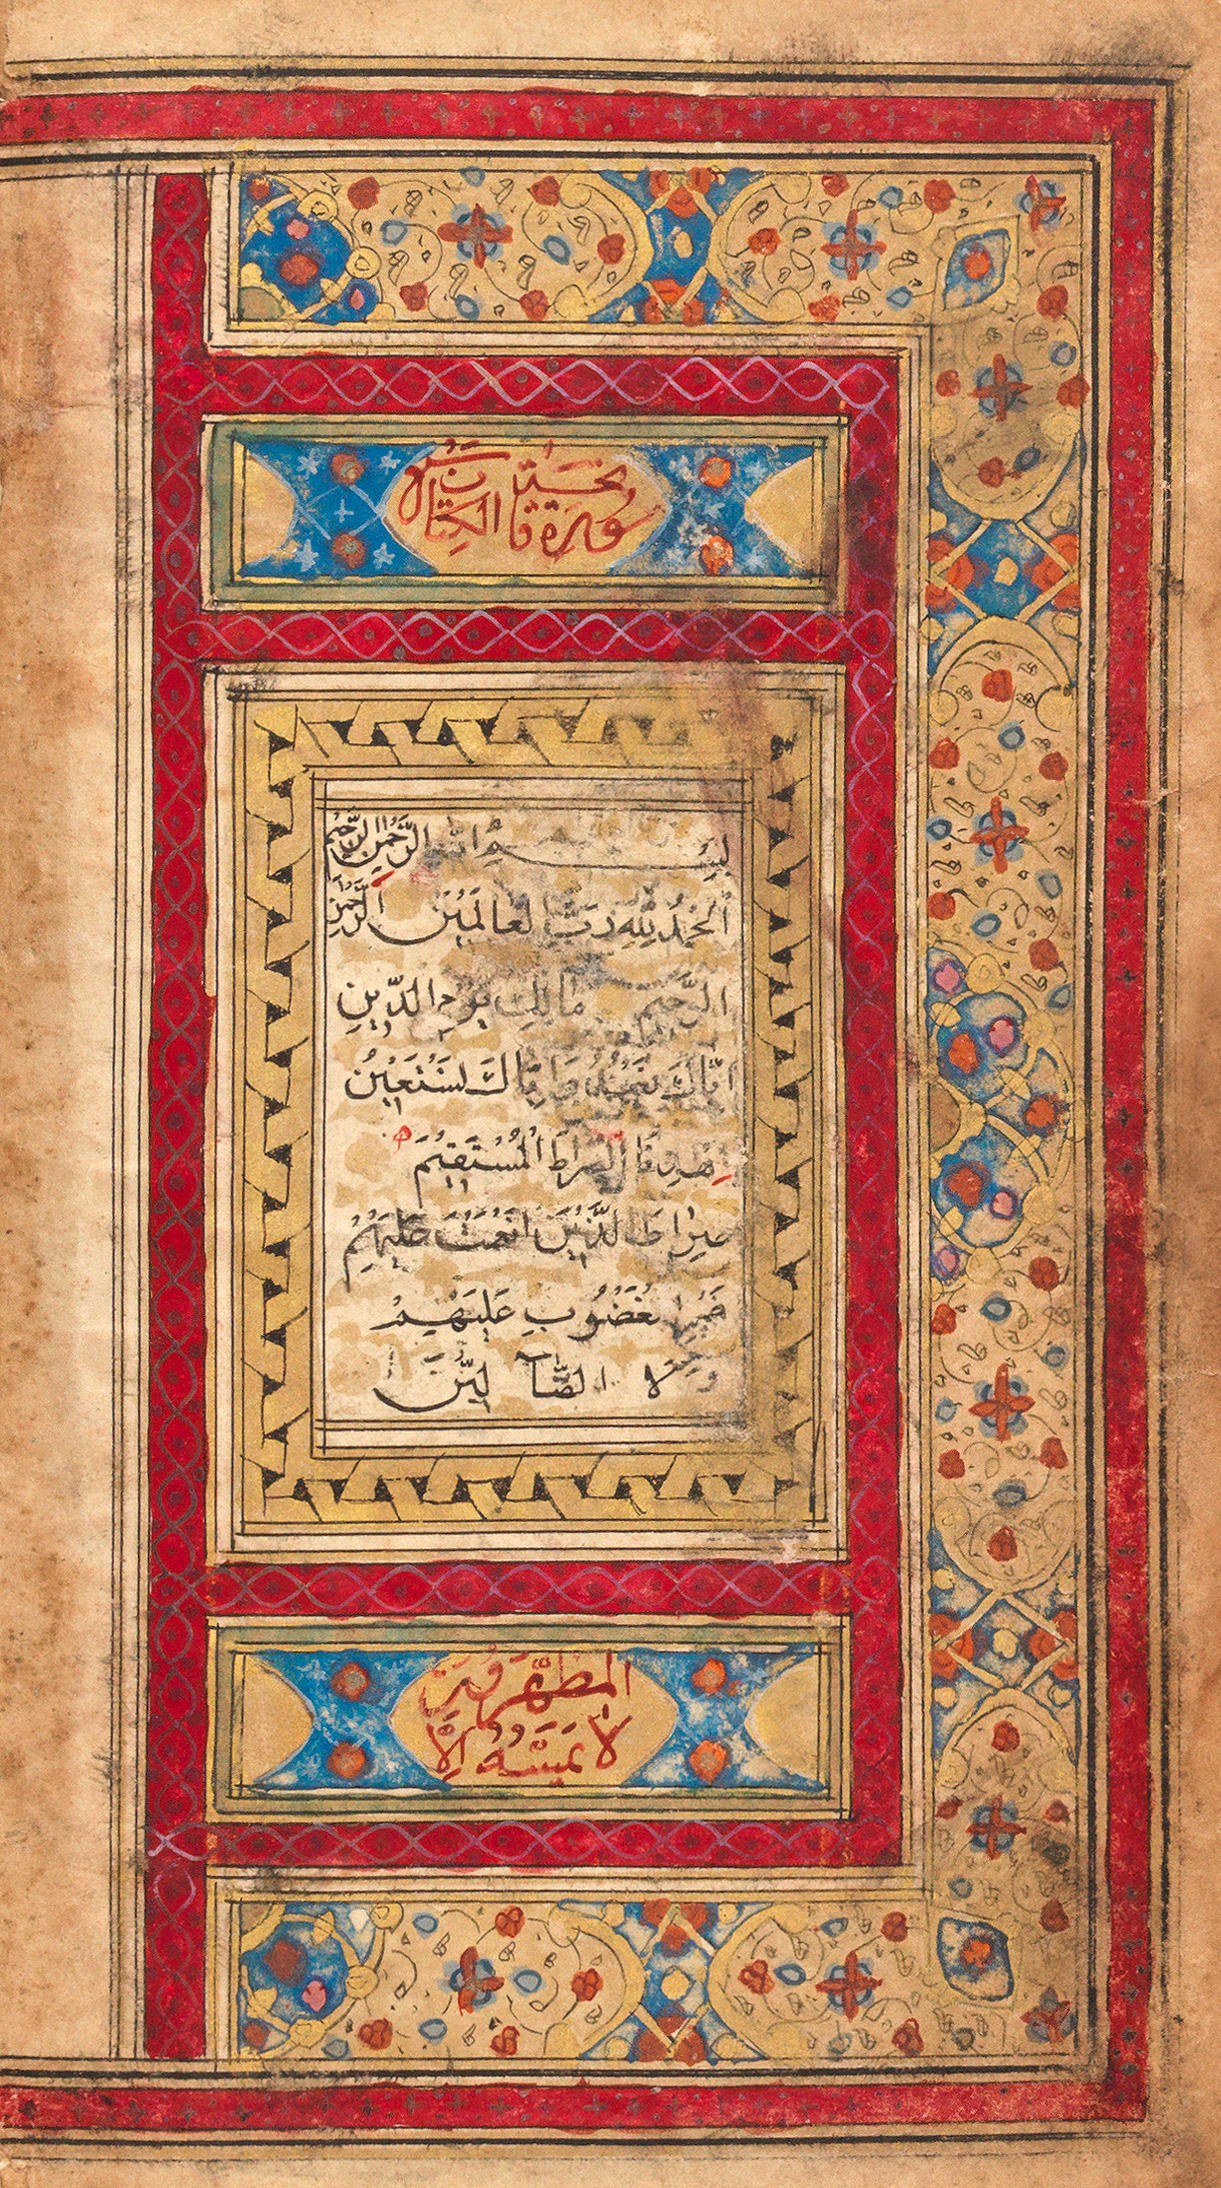 سورة فاتحة الكتاب
بِسْمِ اللّٰه الرَّحْمٰنِ الرَّحِيْمِ
اَلْحَمْدُ لِلّٰهِ رَبِّ الْعَالَمِيْنَ الرَّحْمٰنِ
الرَّحِيمِ مَالِكِ يَوْمِ الدِّينِ
اِيَّاكَ نَعْبُدُ وَاِيَّاكَ نَسْتَعِيْنُ
اِهْدِنَا الصِّرَاطَ الْمُسْتَقِيْمَ
صِرَاطَ الَّذِيْنَ اَنْعَمْتَ عَلَيْهِمْ
غَيْرِ الْمَغْضُوبِ عَلَيْهِمْ
وَلَا الضَّآلِّيْنَ
لَا يَمَسُّهُ اِلَّا
الْمُطَهَّرُوْنَ